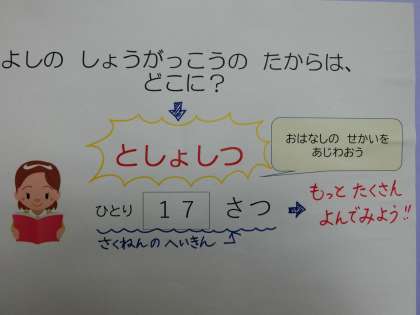 よしの しょうがっこうの たからは、
どこに？
としょしつ
おはなしの せかいを
あじわおう
ひとり 17 さつ
さくねんの へいきん
もっと たくさん
よんでみよう!!